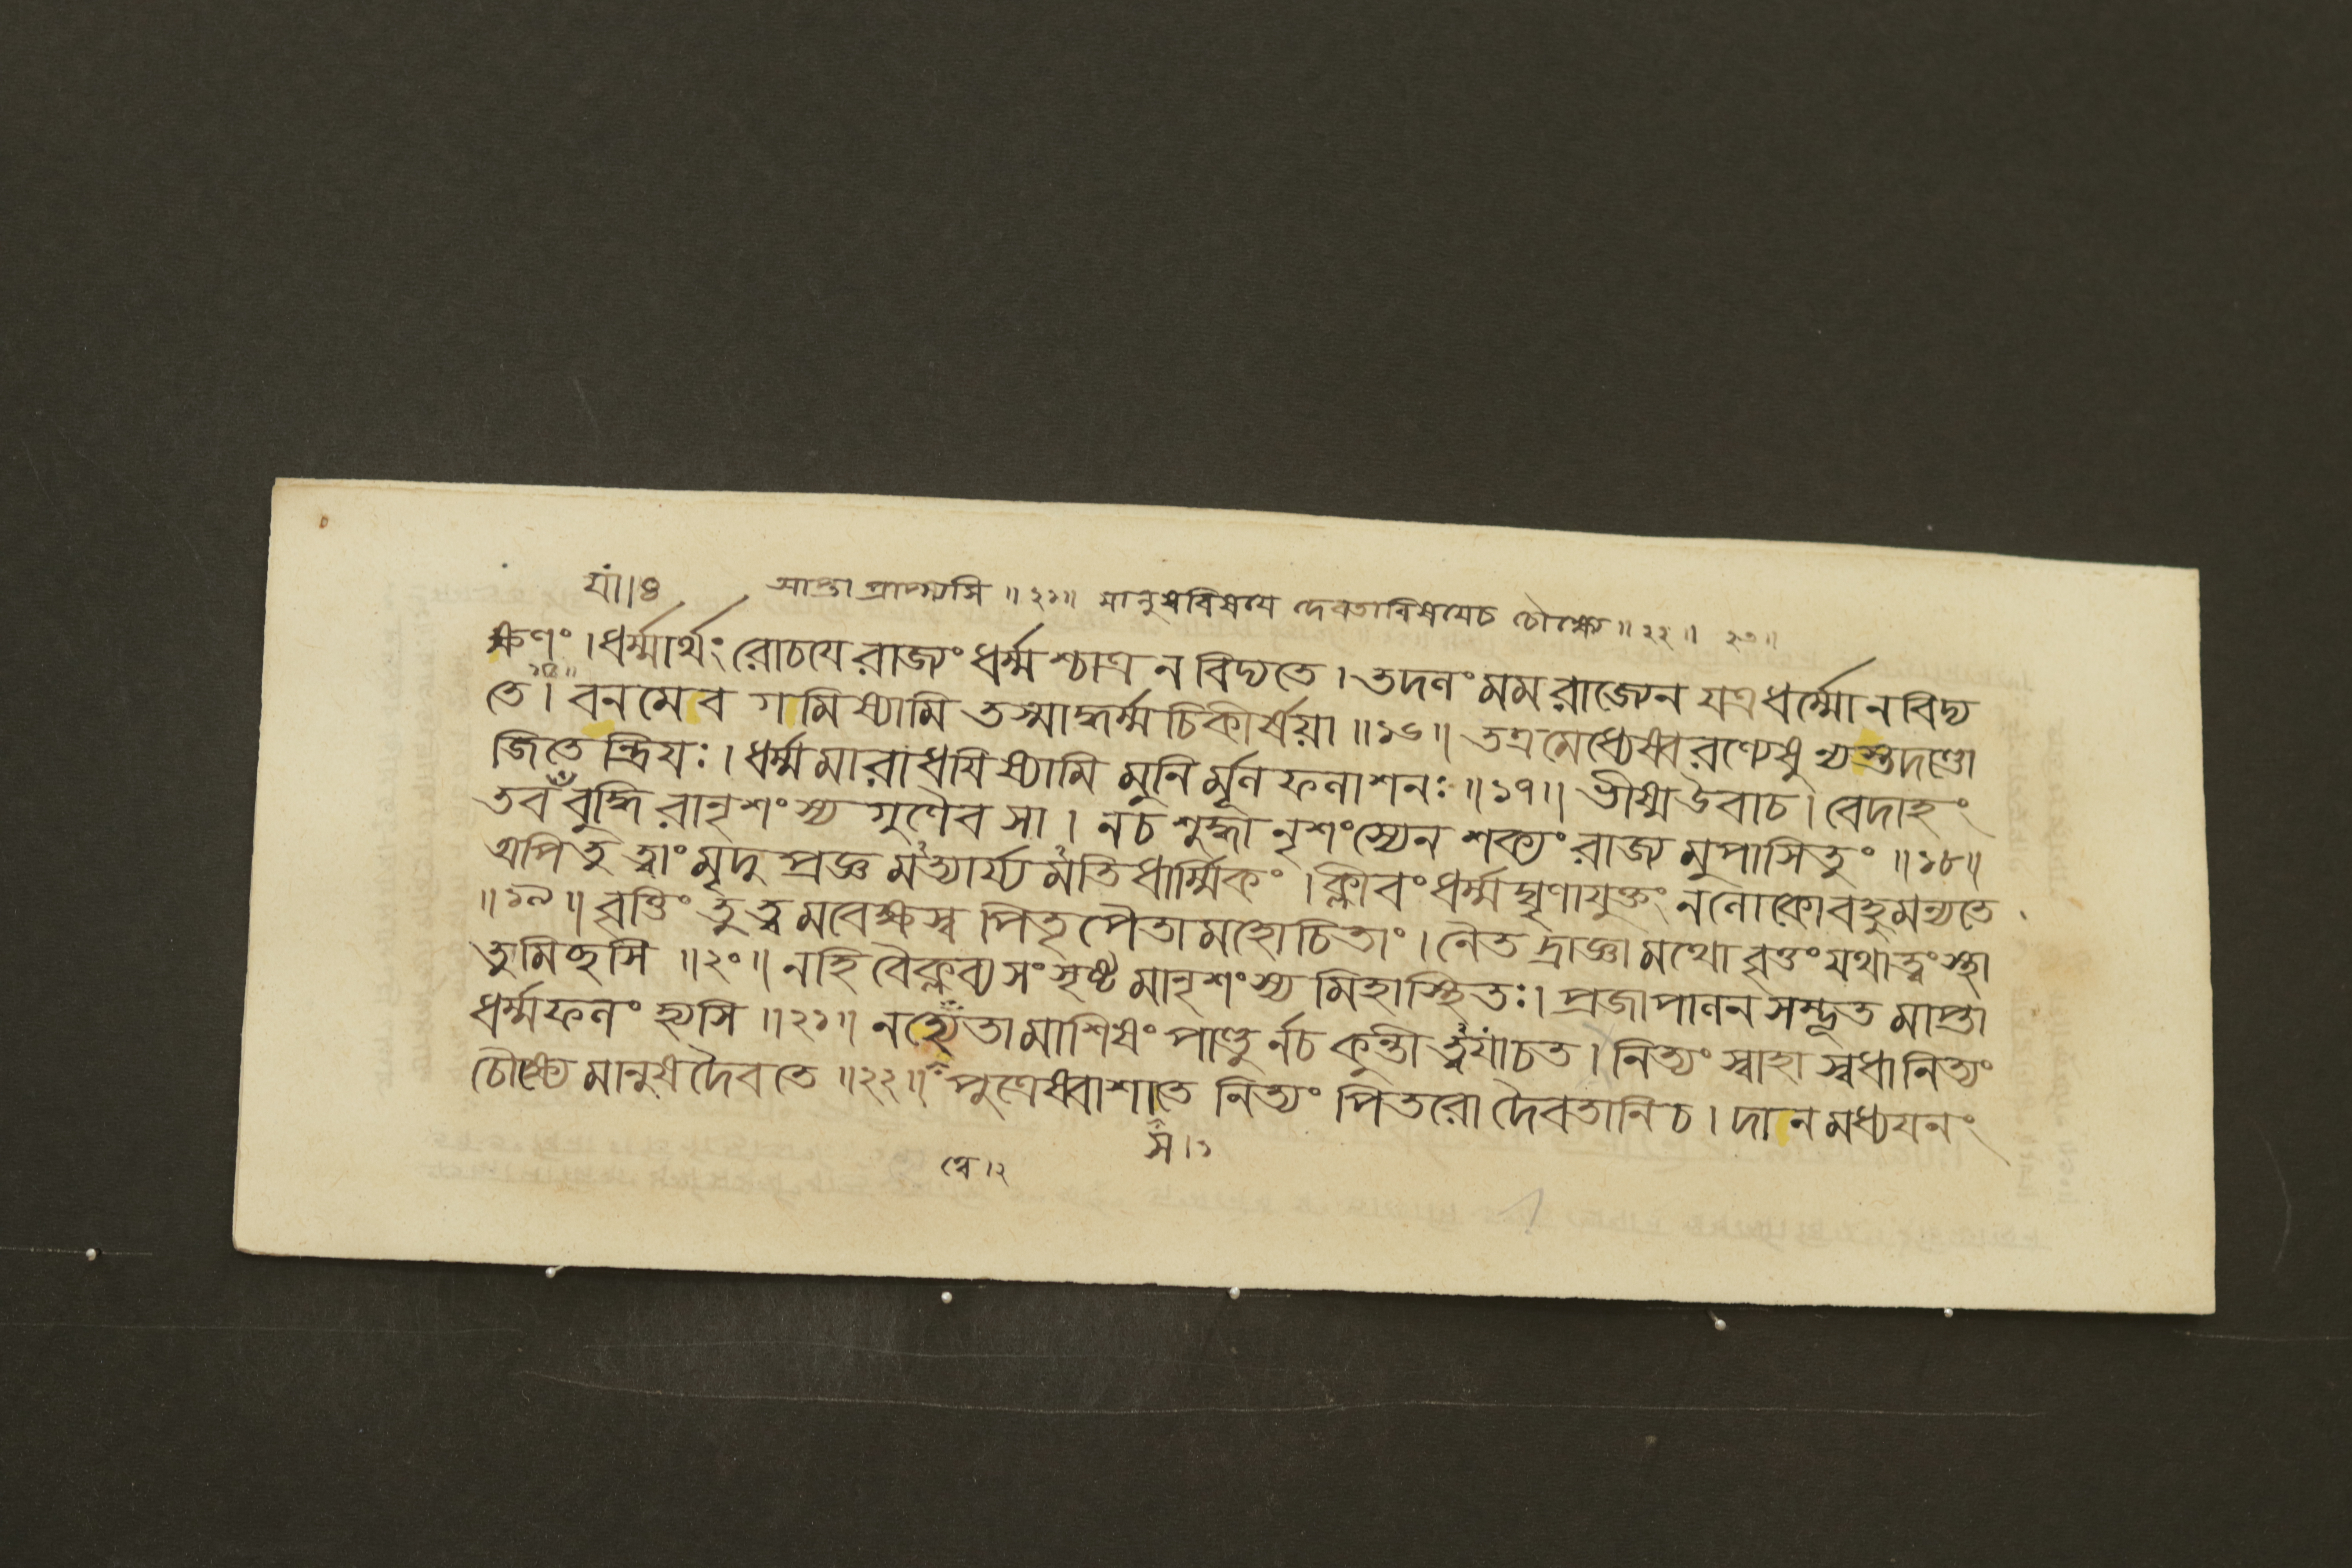 যাং।।৪ আপ্তা প্রাপ্স্যসি ॥২১॥ মানুষবিষয়ে দেবতাবিষয়েচ চৌক্ষ্যে ॥২২॥ ২৩॥
ক্ষণং । ধর্ম্মার্থং রোচযে রাজ্যং ধর্ম্মশ্চাত্র ন বিদ্যতে । তদলং মম রাজ্যেন যত্র ধর্ম্মো ন বিদ্য
১৫॥
তে । বনমেব গমিষ্যামি তস্মাদ্ধর্ম্মচিকীর্ষয়া ॥১৬॥ তত্র মেধ্যেষ্বরণ্যেষু ন্যস্তদণ্ডো
জিতেন্দ্রিযঃ । ধর্ম্মমারাধযিষ্যামি মুনির্মূলফলাশনঃ ॥১৭॥ ভীষ্ম উবাচ । বেদাহং
তব বুদ্ধিরানৃশংস্য গুণৈব সা । ন চ শুদ্ধানৃশংস্যেন শক্যং রাজ্যমুপাসিতুং ॥১৮॥
অপি তু ত্বাং মৃদুপ্রজ্ঞমত্যার্য্যমতিধার্ম্মিকং । ক্লীবং ধর্ম্মঘৃণাযুক্তং ন লোকো বহুমন্যতে
॥১৯॥ বৃত্তিং তু ত্বমবেক্ষস্ব পিতৃপৈতামহোচিতাং । নৈতদ্রাজ্ঞামথো বৃত্তং যথা ত্বং স্থা
তুমিচ্ছসি ॥২০॥ নহি বৈক্লব্যসংসৃষ্টমানৃশংস্যমিহাস্থিতঃ । প্রজাপালনসম্ভূতমাপ্তা
ধর্ম্মফলং হ্যসি ॥২১॥ নহ্যেতামাশিষং পাণ্ডুর্নচ কুন্তী ত্বযাচত । নিত্যং স্বাহা স্বধা নিত্যং
চৌক্ষ্যে মানুষদৈবতে ॥২২॥ পুত্রেষ্বাশাতে নিত্যং পিতরো দৈবতানি চ । দানমধ্যযনং
স ।১
ত্বে ।২